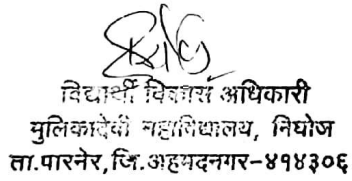 विद्यार्थी विकास अधिकारी
मुलिकादेवी महाविद्यालय, निघोज
ता.पारनेर, जि.अहमदनगर-४१४३०६